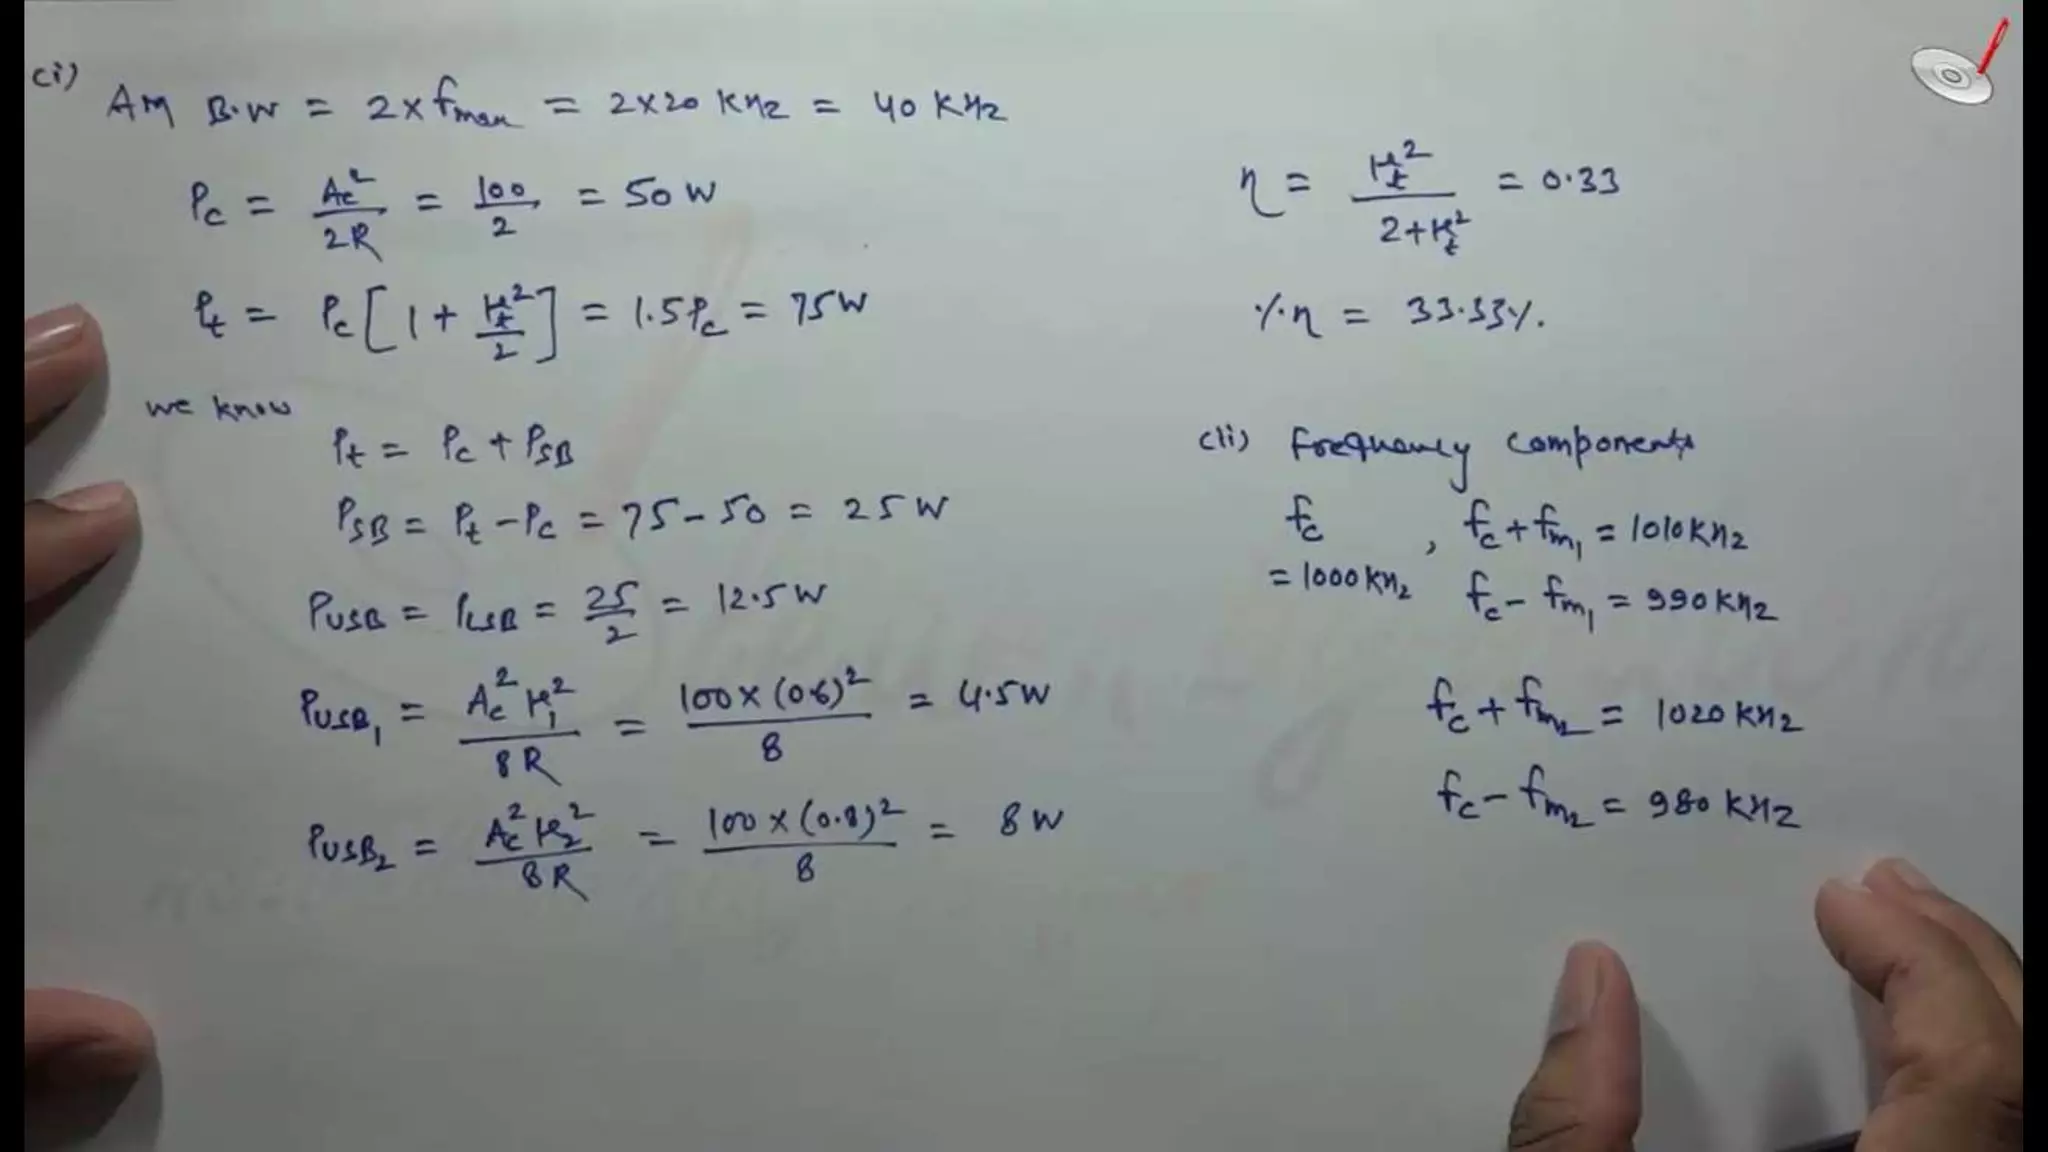 (i)
AM B.W = 2 x fmax = 2x20 KHz = 40 KHz
Pc = Ac²/2R = 100/2 = 50 W
Pt = Pc [1 + μt²/2] = 1.5Pc = 75W
we know
Pt = Pc + PSB
PSB = Pt - Pc = 75 - 50 = 25 W
PUSB = PLSB = 25/2 = 12.5 W
PUSB1 = Ac² μ1²/8R = 100 x (0.6)²/8 = 4.5W
PUSB2 = Ac² μ2²/8R = 100 x (0.8)²/8 = 8 W
η = μt²/2+μt² = 0.33
%η = 33.33%.
(ii) Frequency components
fc , fc + fm1 = 1010KHz
= 1000 KHz
fc - fm1 = 990 KHz
fc + fm2 = 1020 KHz
fc - fm2 = 980 KHz